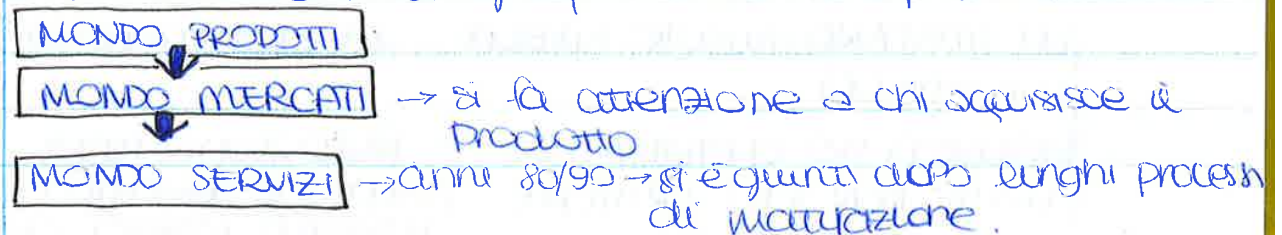 MONDO PRODOTTI
MONDO MERCATI → si fa attenzione a chi acquisisce il
prodotto
MONDO SERVIZI → anni 80/90 → si è giunti dopo lunghi processi
di maturazione.